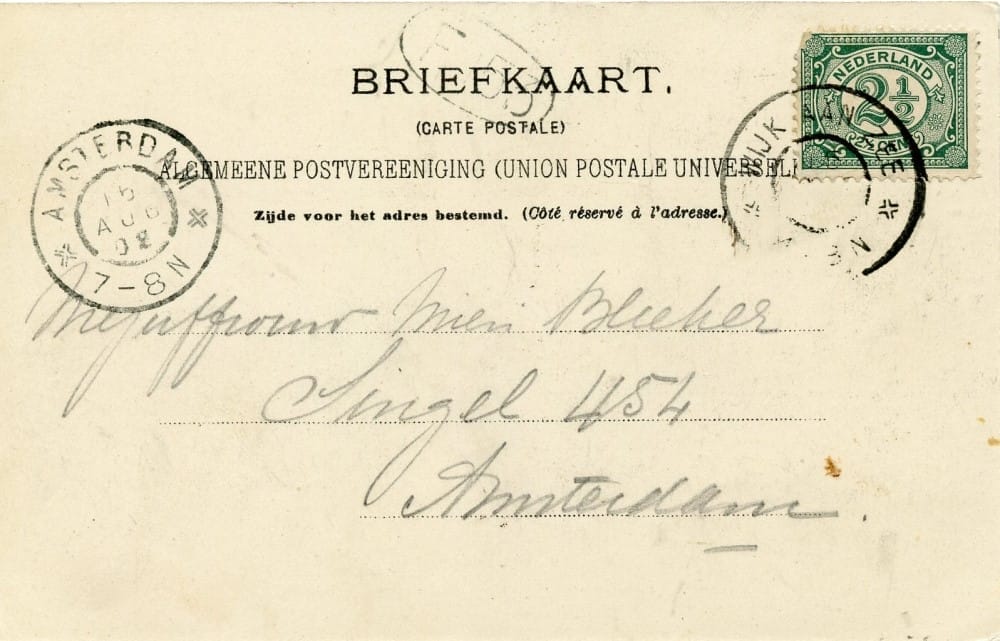 BRIEFKAART.
(CARTE POSTALE)
ALGEMEENE POSTVEREENIGING (UNION POSTALE UNIVERSELLE
Zijde voor het adres bestemd. (Côté réservé à l'adresse.)
NEDERLAND
2½
2½ CENT
WIJK AAN ZEE
8N
AMSTERDAM
15
AUG
02
7-8N
Mejuffrouw Mien Bleeker
Singel 454
Amsterdam.